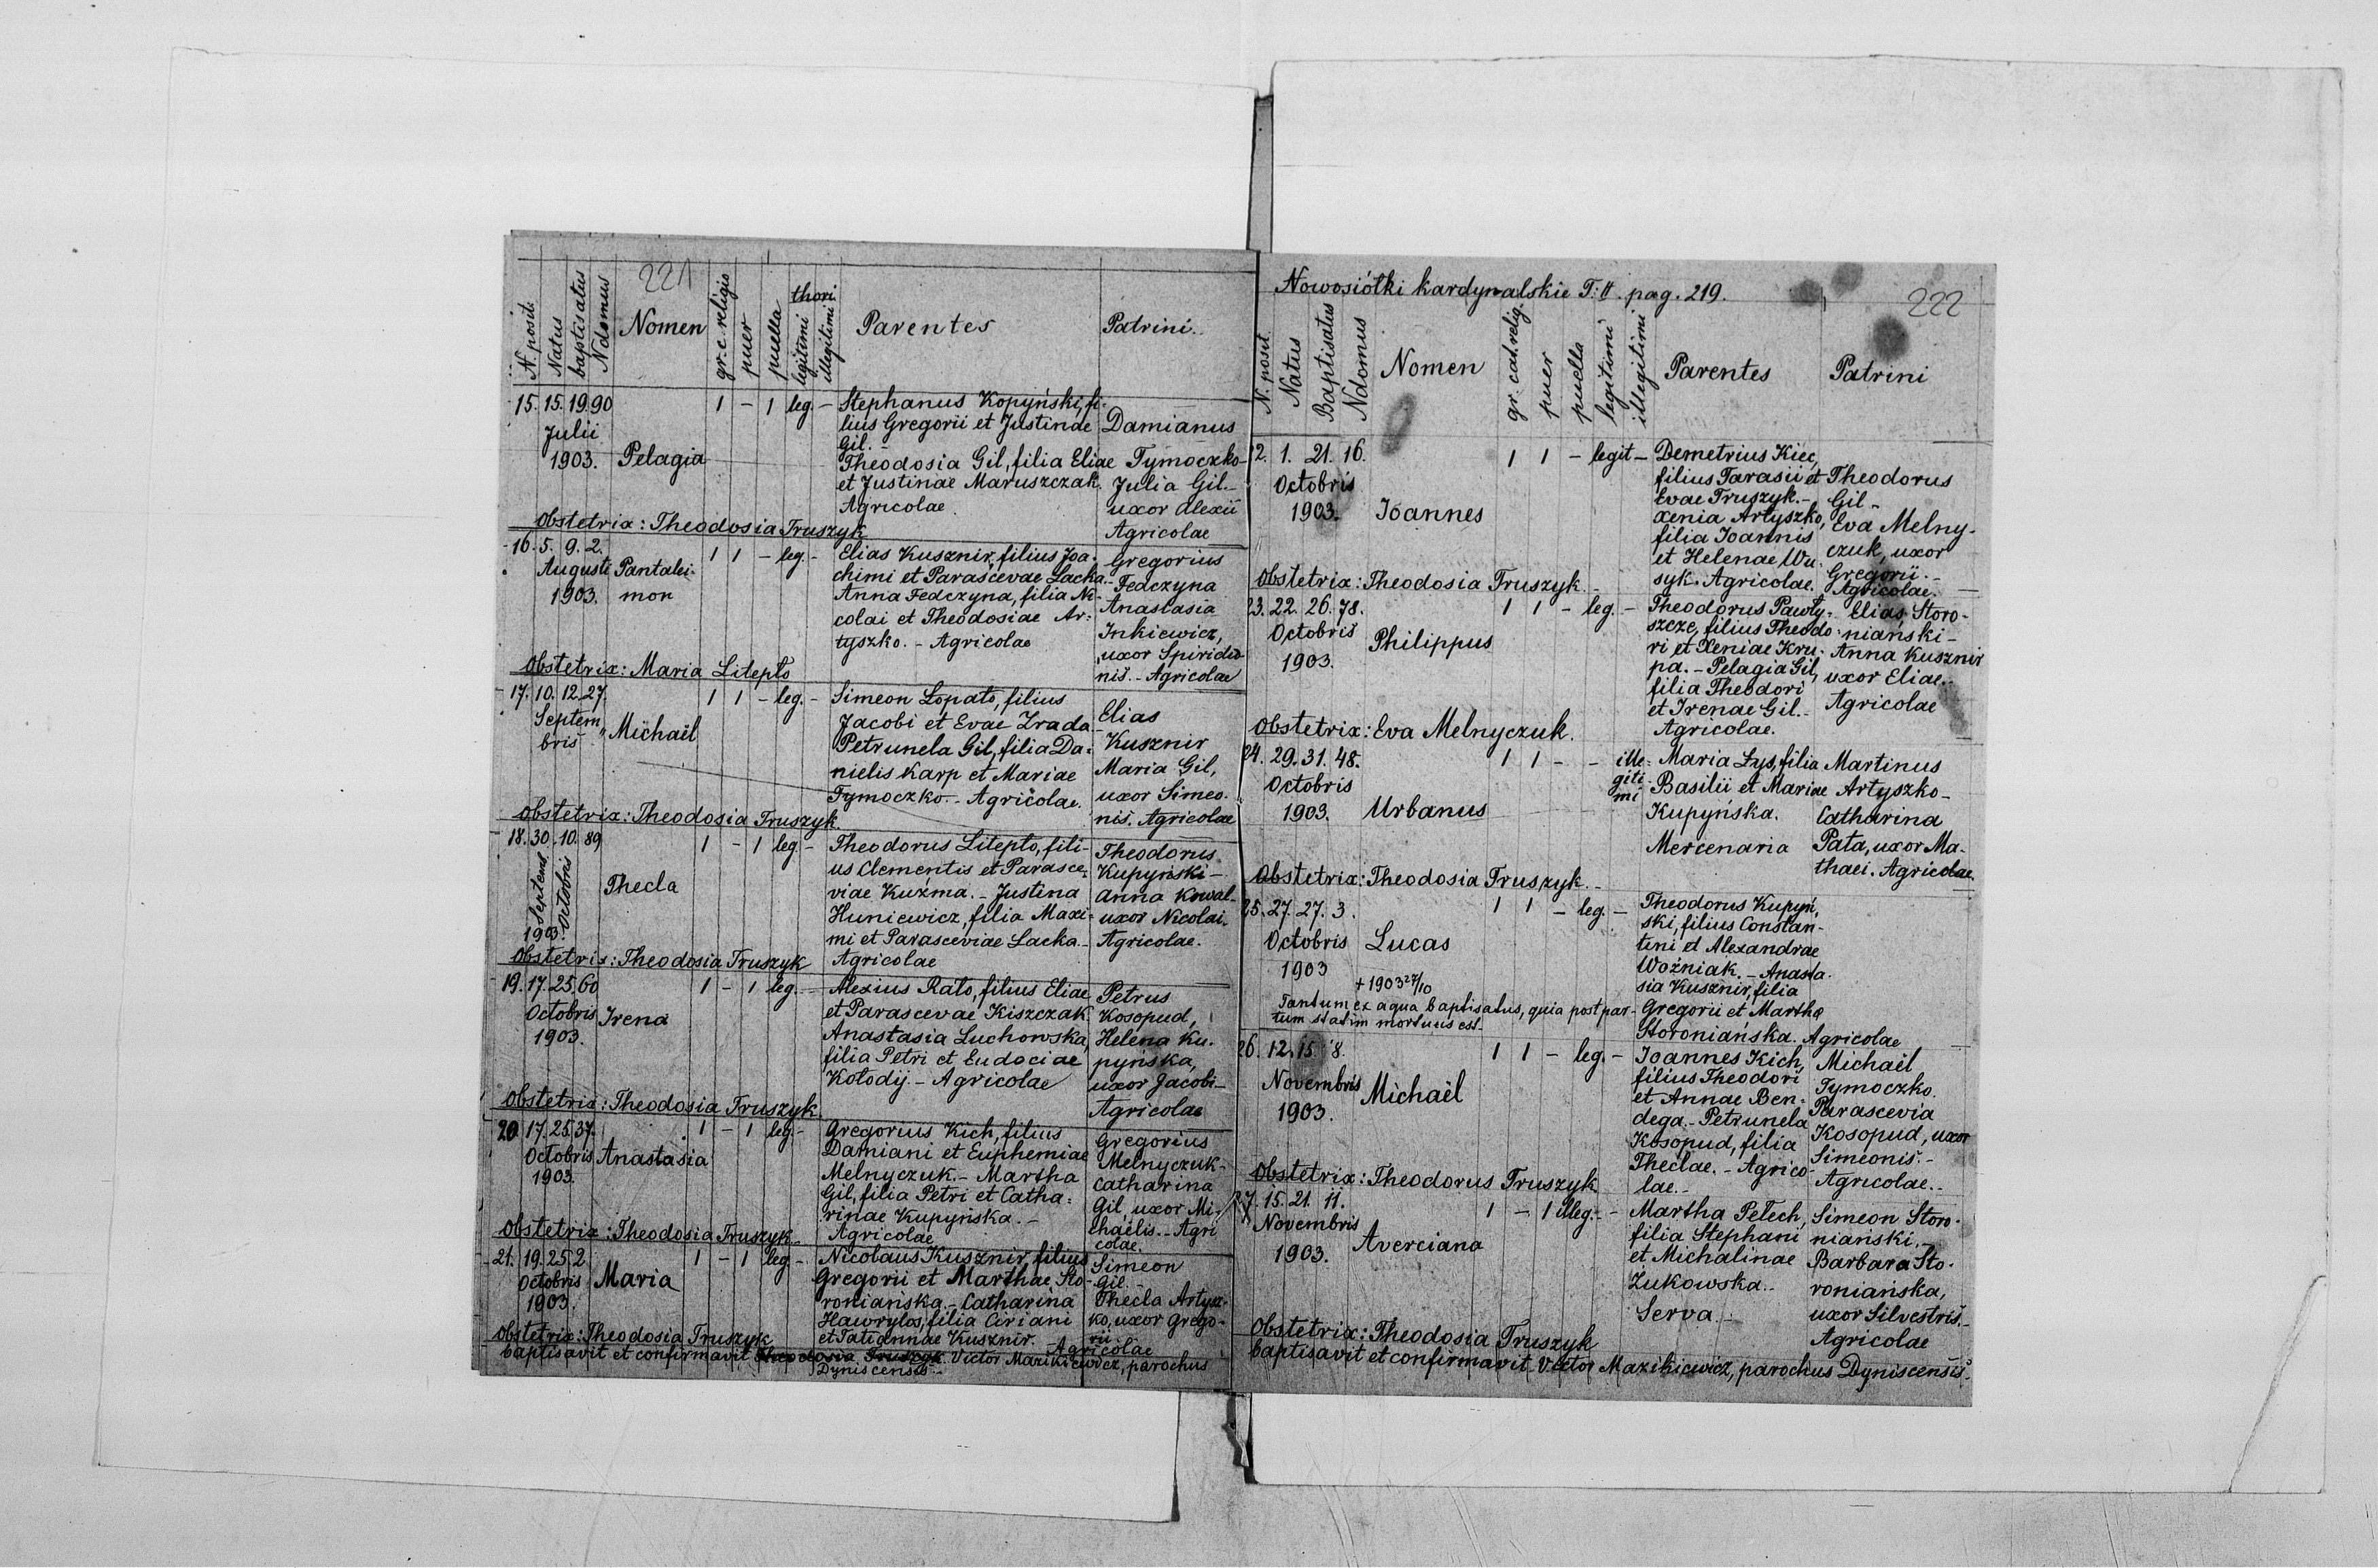 221
N. posit.
Natus
baptisatus
N domus
Nomen
gr. c. religio
puer
puella
thori
legitimi
illegitimi
Parentes
Patrini.
15. 15. 19. 90 1 - 1 leg. - Stephanus Kopyński, fi-
lius Gregorii et Justinae Damianus
Julii
Gil. -
1903. Pelagia Theodosia Gil, filia Eliae Tymoczko -
et Justinae Maruszczak. Julia Gil. -
Agricolae. uxor Alexii
Obstetrix: Theodosia Truszyk Agricolae
16. 5. 9. 2. 1 1 - leg. - Elias Kusznir, filius Joa- Gregorius
Augusti Pantalei- chimi et Parascevae Lacka. - Fedczyna
1903. mon Anna Fedczyna, filia Ni- Anastasia
colai et Theodosiae Ar- Inkiewicz,
tyszko. - Agricolae uxor Spirido-
Obstetrix: Maria Litepto nis. - Agricolae
17. 10. 12. 27. 1 1 - leg. - Simeon Łopato, filius
Septem " Michaël Jacobi et Evae Zrada Elias
bris Petrunela Gil, filia Da- Kusznir
nielis Karp et Mariae Maria Gil,
Tymoczko. - Agricolae. uxor Simeo-
Obstetrix: Theodosia Truszyk. nis. Agricolae
18. 30. 10. 89 1 - 1 leg - Theodorus Litepto, fili- Theodorus
Septemb. Octobris us Clementis et Parasce- Kupyński -
Thecla viae Kuźma. - Justina Anna Kowal-
Huniewicz, filia Maxi- uxor Nicolai.
1903. mi et Parasceviae Lacka. - Agricolae.
Obstetrix: Theodosia Truszyk Agricolae
19. 17. 25. 60 1 - 1 leg. - Alexius Rato, filius Eliae Petrus
Octobris Irena et Parascevae Kiszczak Kosopud,
1903. Anastasia Luchowska, Helena Ku-
filia Petri et Eudociae pyńska,
Kołodij. - Agricolae uxor Jacobi -
Obstetrix: Theodosia Truszyk. Agricolae
20 17. 25. 37. 1 - 1 leg. - Gregorius Kich, filius Gregorius
Octobris Anastasia Damiani et Euphemiae Melnyczuk -
1903. Melnyczuk. - Martha Catharina
Gil, filia Petri et Catha- Gil, uxor Mi-
rinae Kupyńska. - chaëlis. - Agri
Obstetrix: Theodosia Truszyk. - Agricolae colae.
21. 19. 25. 2. 1 - 1 leg. - Nicolaus Kusznir, filius Simeon
Octobris Maria Gregorii et Marthae Sto- Gil. -
1903. roniańska. - Catharina Thecla Artysz-
Hawrylos, filia Ciriani ko, uxor Grego-
Obstetrix: Theodosia Truszyk et Tatiannae Kusznir. - Agricolae rii
baptisavit et confirmavit Theodosia Truszyk Victor Mazikiewicz, parochus
Dyniscensis. -
Nowosiółki kardynalskie T: II. pag. 219.
222
N. posit.
Natus
Baptisatus
N domus
Nomen
gr. cat. relig.
puer
puella
legitimi
illegitimi
Parentes
Patrini
22. 1. 21. 16. 1 1 - legit - Demetrius Kiec,
Octobris filius Tarasii et Theodorus
Evae Truszyk. - Gil -
1903. Joannes Xenia Artyszko, Eva Melny-
filia Joannis czuk, uxor
et Helenae Wu- Gregorii. -
Obstetrix: Theodosia Truszyk. - syk. Agricolae. Agricolae.
23. 22. 26. 78. 1 1 - leg. - Theodorus Pawły- Elias Storo-
Octobris Philippus szcze, filius Theodo- niański -
1903. ri et Xeniae Kru- Anna Kusznir
pa. - Pelagia Gil, uxor Eliae. -
filia Theodori
et Irenae Gil. - Agricolae
Obstetrix: Eva Melnyczuk. Agricolae.
24. 29. 31. 48. 1 1 - - ille- Maria Łys, filia Martinus
Octobris giti- Basilii et Mariae Artyszko -
mi
1903. Urbanus Kupyńska. Catharina
Mercenaria Pata, uxor Ma-
thaei. Agricolae.
Obstetrix: Theodosia Truszyk. -
25. 27. 27. 3. 1 1 - leg. - Theodorus Kupyń-
ski, filius Constan-
Octobris Lucas tini et Alexandrae
1903 Woźniak. - Anasta-
+ 1903 27/10 sia Kusznir, filia
Tantum ex aqua baptisatus, quia post par- Gregorii et Martha
tum statim mortuus est. Storoniańska. Agricolae
26. 12. 15. 8. 1 1 - leg. - Joannes Kich, Michaël
Novembris Michaël filius Theodori Tymoczko.
1903. et Annae Ben- Parascevia
dega. - Petrunela Kosopud, uxor
Kosopud, filia Simeonis. -
Obstetrix: Theodorus Truszyk Theclae. - Agrico- Agricolae. -
lae. -
27. 15. 21. 11. 1 - 1 illeg. - - Martha Petech, Simeon Storo-
Novembris filia Stephani niański. -
1903. Averciana et Michalinae Barbara Sto-
Zukowska. - roniańska,
Serva. - uxor Silvestris. -
Obstetrix: Theodosia Truszyk Agricolae
baptisavit et confirmavit Victor Mazikiewicz, parochus Dyniscensis. -